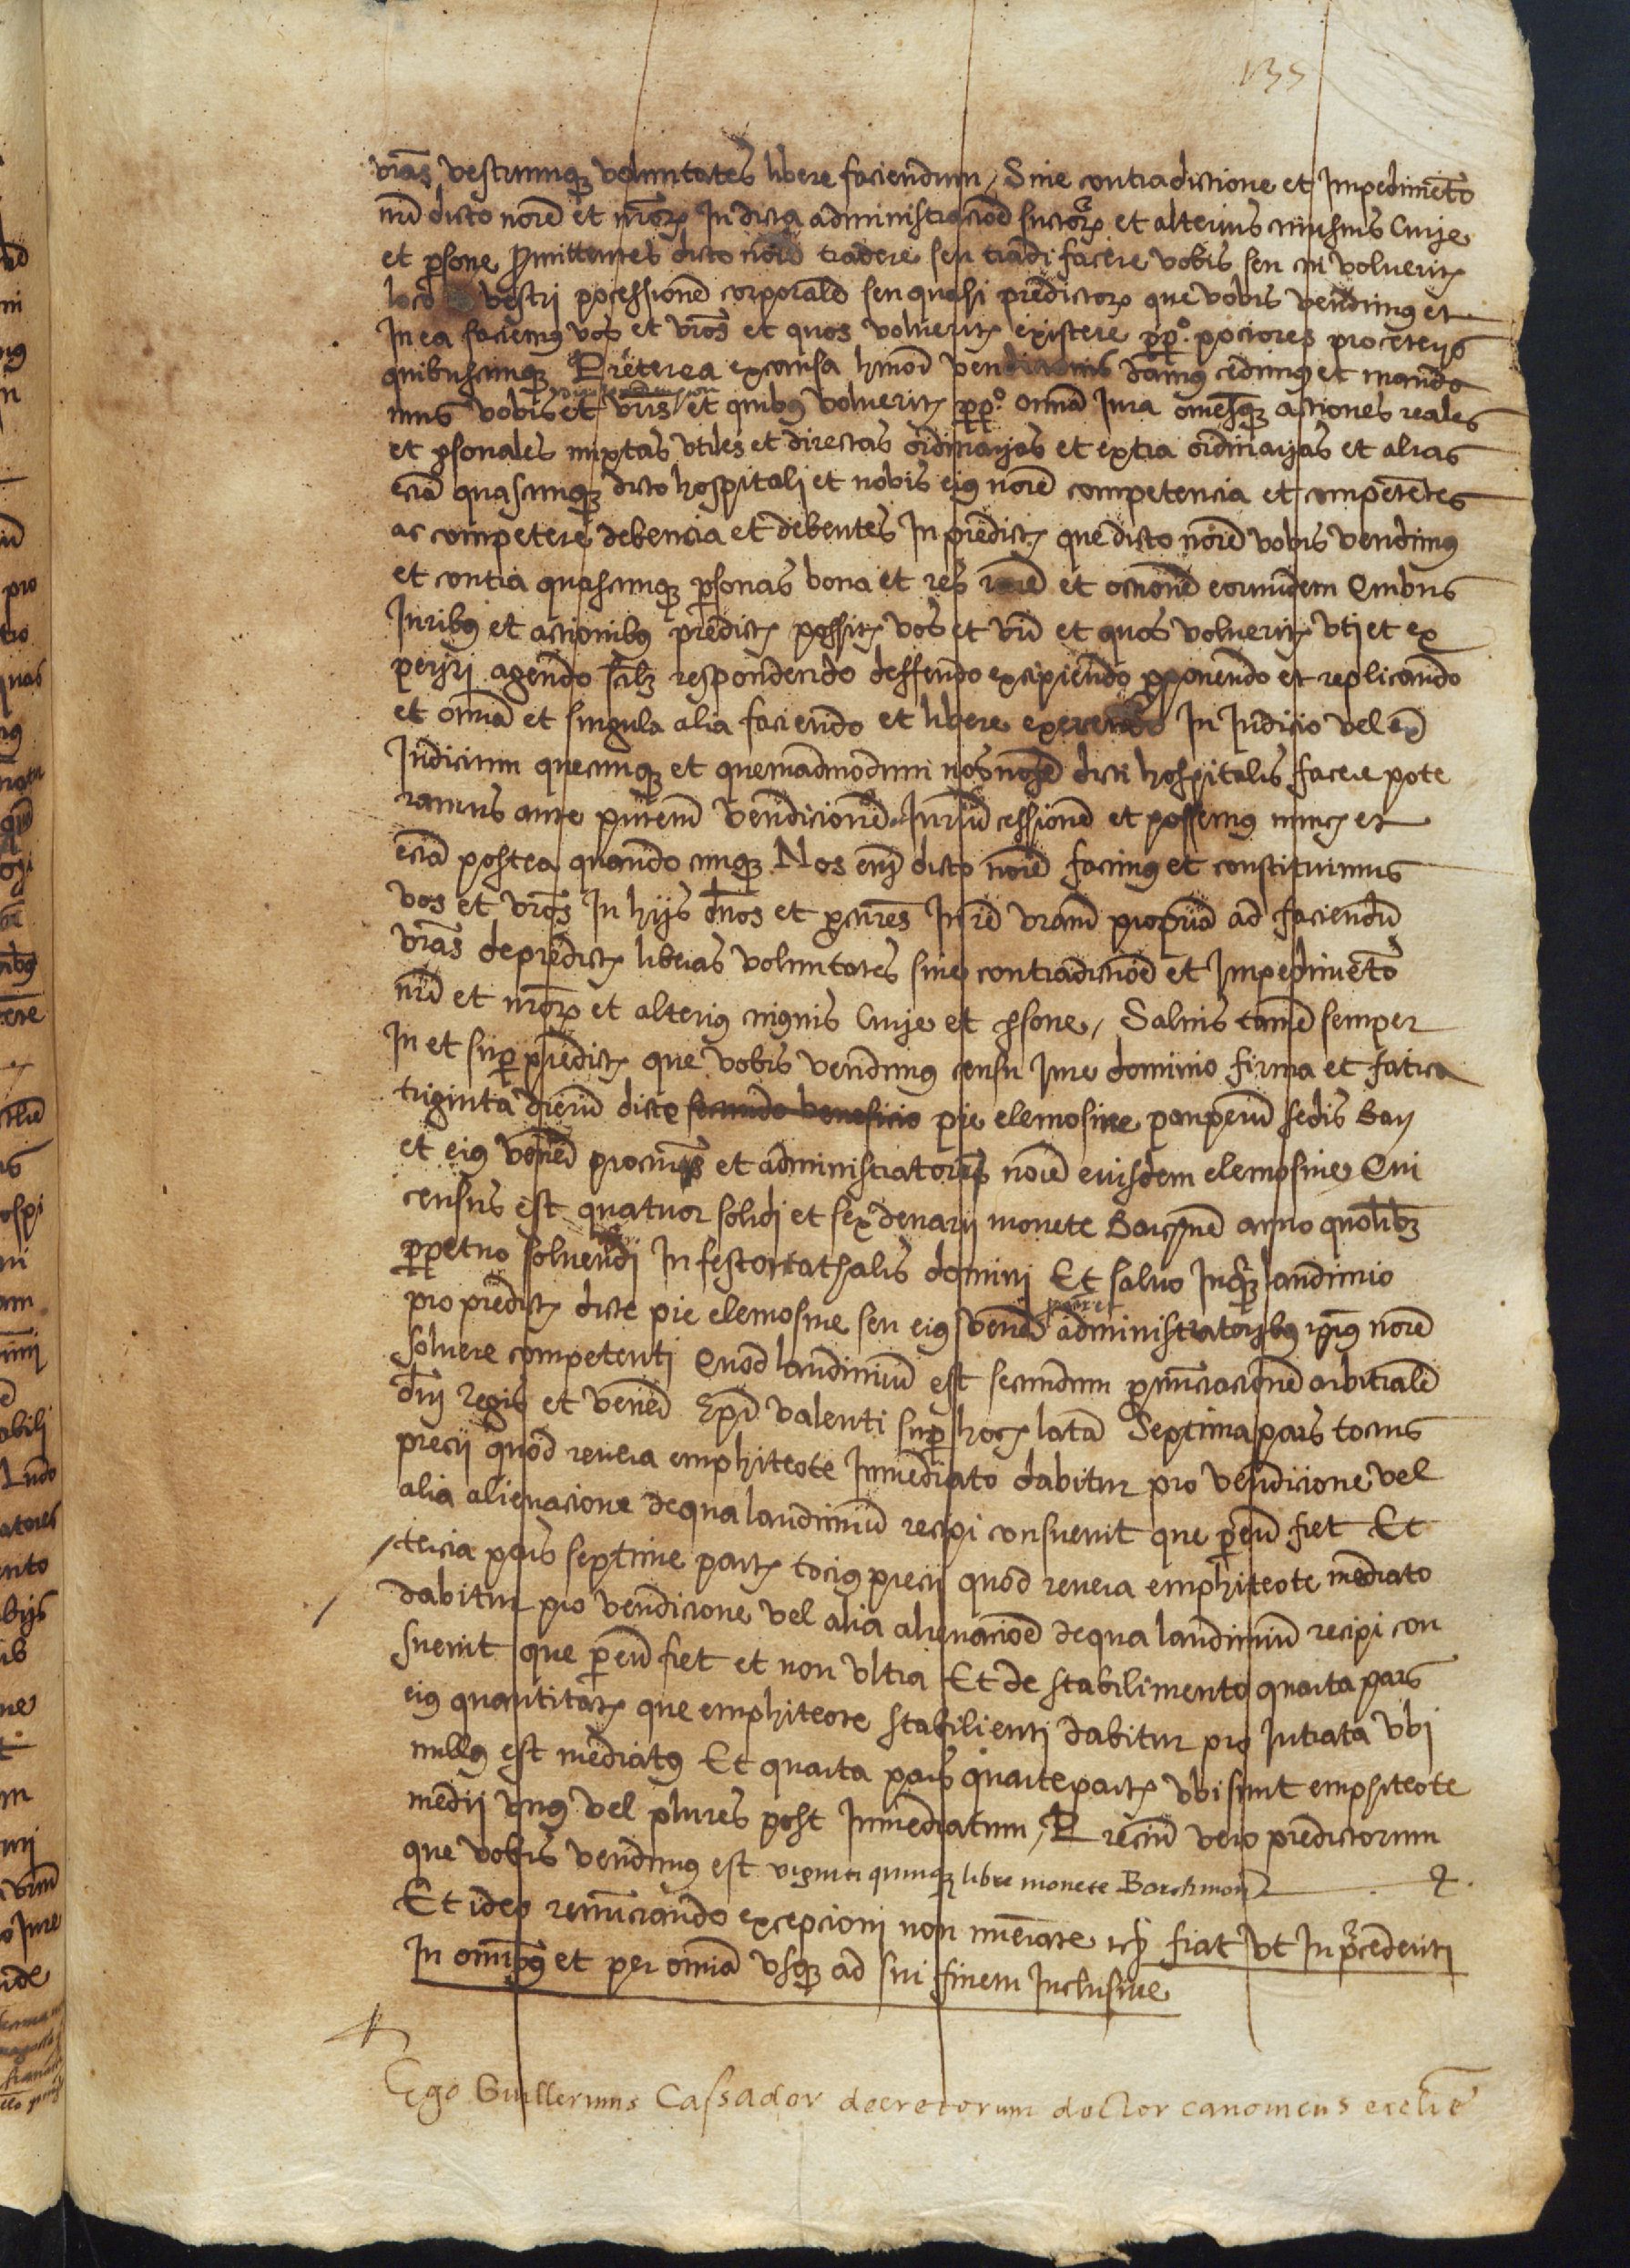 135
vras vestrumq voluntates libere faciendum / Sine contradictione et Impedimeto
nri dicto noie et nror In dicta administracioe suctor et alterius cuiusuis Curje
et psone promittentes dicto noie tradere seu tradi facere vobis seu cui volueritis
loco vestri possessione corporale seu quasi predictor que vobis vendimus et
In ea faciemus vos et vros et quos volueritis existere ppº. pociores pro ceterijs
quibuscunq Preterea ex causa hmoi vendicionis damus cedimus et manda
mus vobis et vris et quibus volueritis ppº omia Jura omesq actiones reales
et psonales mixtas vtiles et directas ordinarijas et extra ordinarijas et alias
ecia quascunq dicto hospitali et nobis eius noie competencia et competetes
ac competere debencia et debentes In predictis que dicto noie vobis vendimus
et contra quascunq psonas bona et res roe et occnone eorundem Quibus
Juribus et actionibus predictis possitis vos et vri et quos volueritis vti et ex
perijri agendo scilz respondendo deffendo excipiendo pponendo et replicando
et omia et singula alia faciendo et libere exercendo In Judicio vel ex
Judicium quecunq et quemadmodum nos noie dicti hospitalis facere pote
ramus ante pntem vendicione Juriu cessione et possemus nunc et
ecia postea quando cunq. Nos eni dicto noie facimus et constituimus
vos et vros In hijs dnos et pcures In re vram propria ad faciendu
vras de predictis liberas voluntates sine contradictioe et Impedimeto
nri et nror et alterius cuiusuis Curje et psone / Saluis tame semper
In et sup predictis que vobis vendimus censu Jure dominio firma et fatica
triginta dieru dicte secundo beneficio pie elemosine pauperu sedis Bar
et eius vene procurs et administratores noie eiusdem elemosine Qui
census est quatuor solidi et sex denarij monete Barchne anno quolibz
ppetuo soluendi In festo nathalis domini Et saluo Inq laudimio
pro predictis dicte pie elemosine seu eius vene administratoribus ipius noie
soluere competenti Quod laudimiu est secundum pnunciacione arbitrale
dni Regis et vene Epi valenti sup hoc lata Septima pars tocius
precij quod reuera emphiteote Inmediato dabitur pro vendicione vel
alia alienacione de qua laudimiu recipi consueuit que per eu fiet Et
tercia pars septime partis tocius precij quod reuera emphiteote mediato
dabitur pro vendicione vel alia alienacioe de qua laudimiu recipi con
sueuit que per eu fiet et non vltra Et de stabilimento quarta pars
eius quantitatis que emphiteote stabilienti dabitur pro Intrata vbi
nullus est mediatus Et quarta pars quarte partis vbi sunt emphiteote
medij vnus vel plures post Inmediatum / Preciu vero predictorum
que vobis vendimus est viginti quinq libre monete Barchinon
Et ideo renunciando excepcioni non numerate etc fiat vt In precedenti
In omibus et per omia vsq ad sui finem Inclusiue
Ego Guillermus Cassador decretorum doctor canonicus ecclie